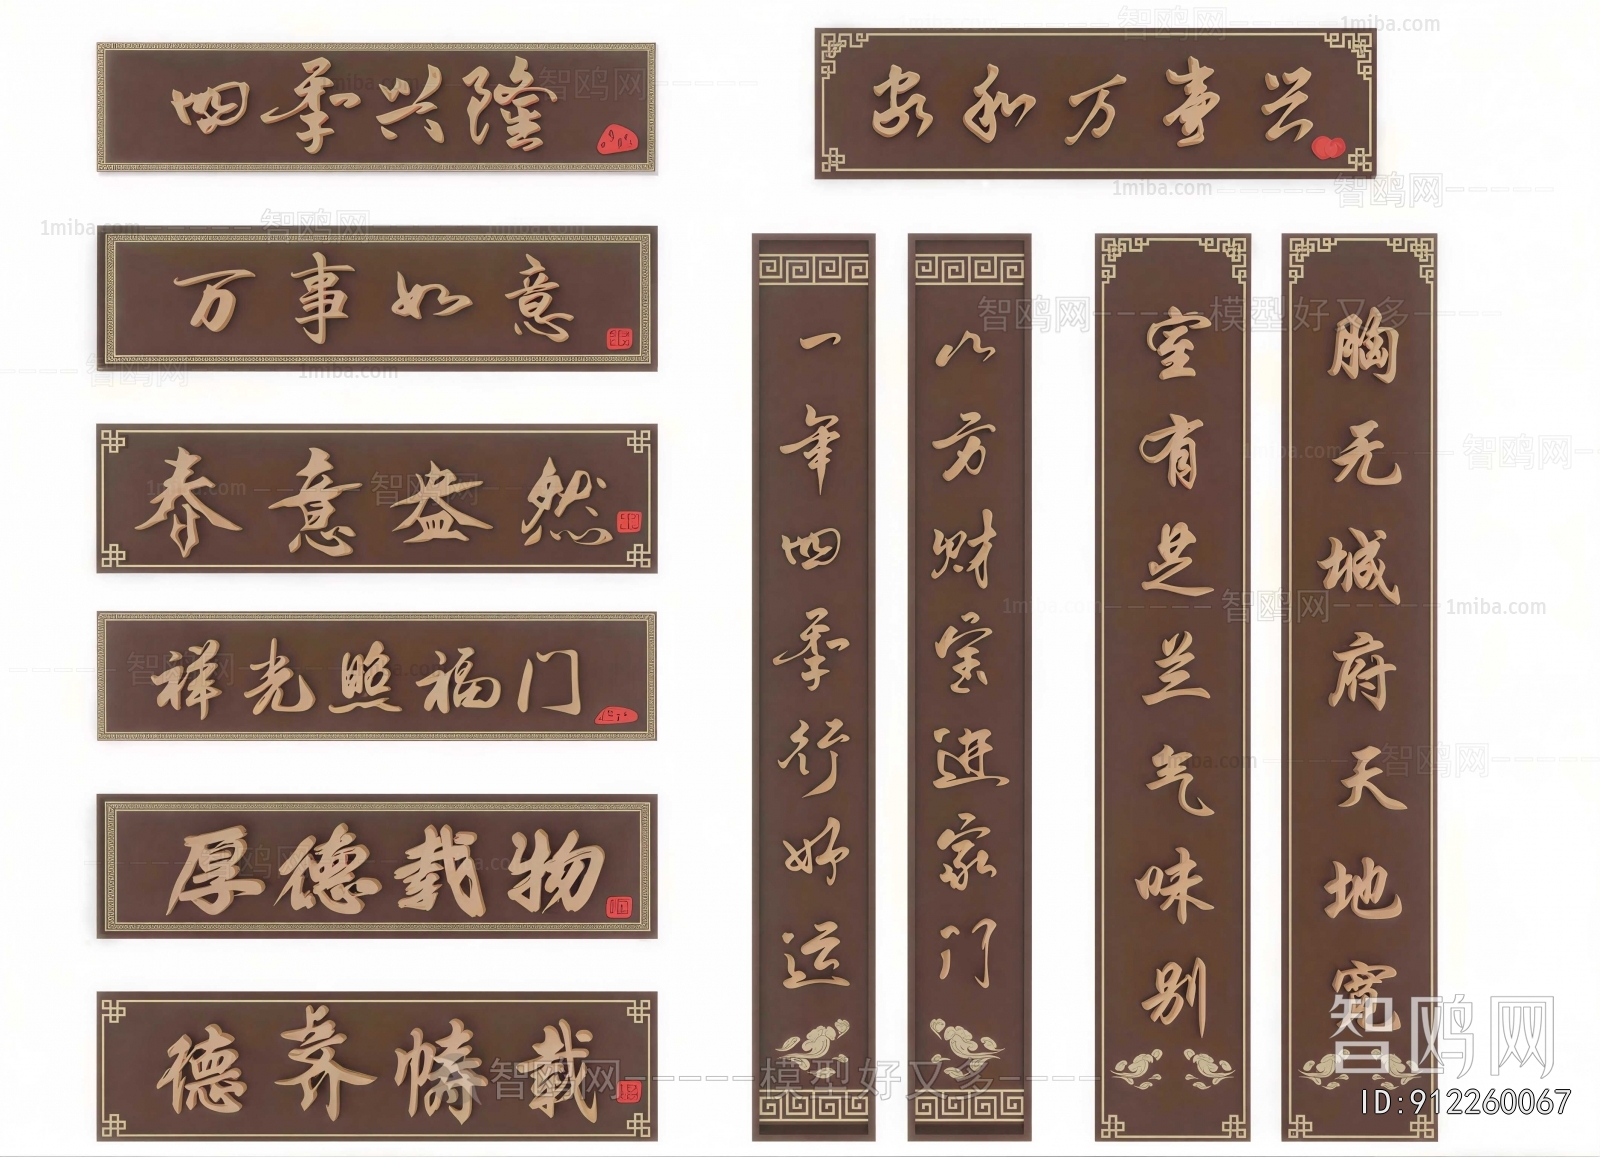 四季兴隆
万事如意
春意盎然
祥光照福门
厚德载物
德齐帱载
家和万事兴
一年四季行好运
八方财宝进家门
室有芝兰气味别
胸无城府天地宽
智鸥网
模型好又多
1miba.com
ID:912260067